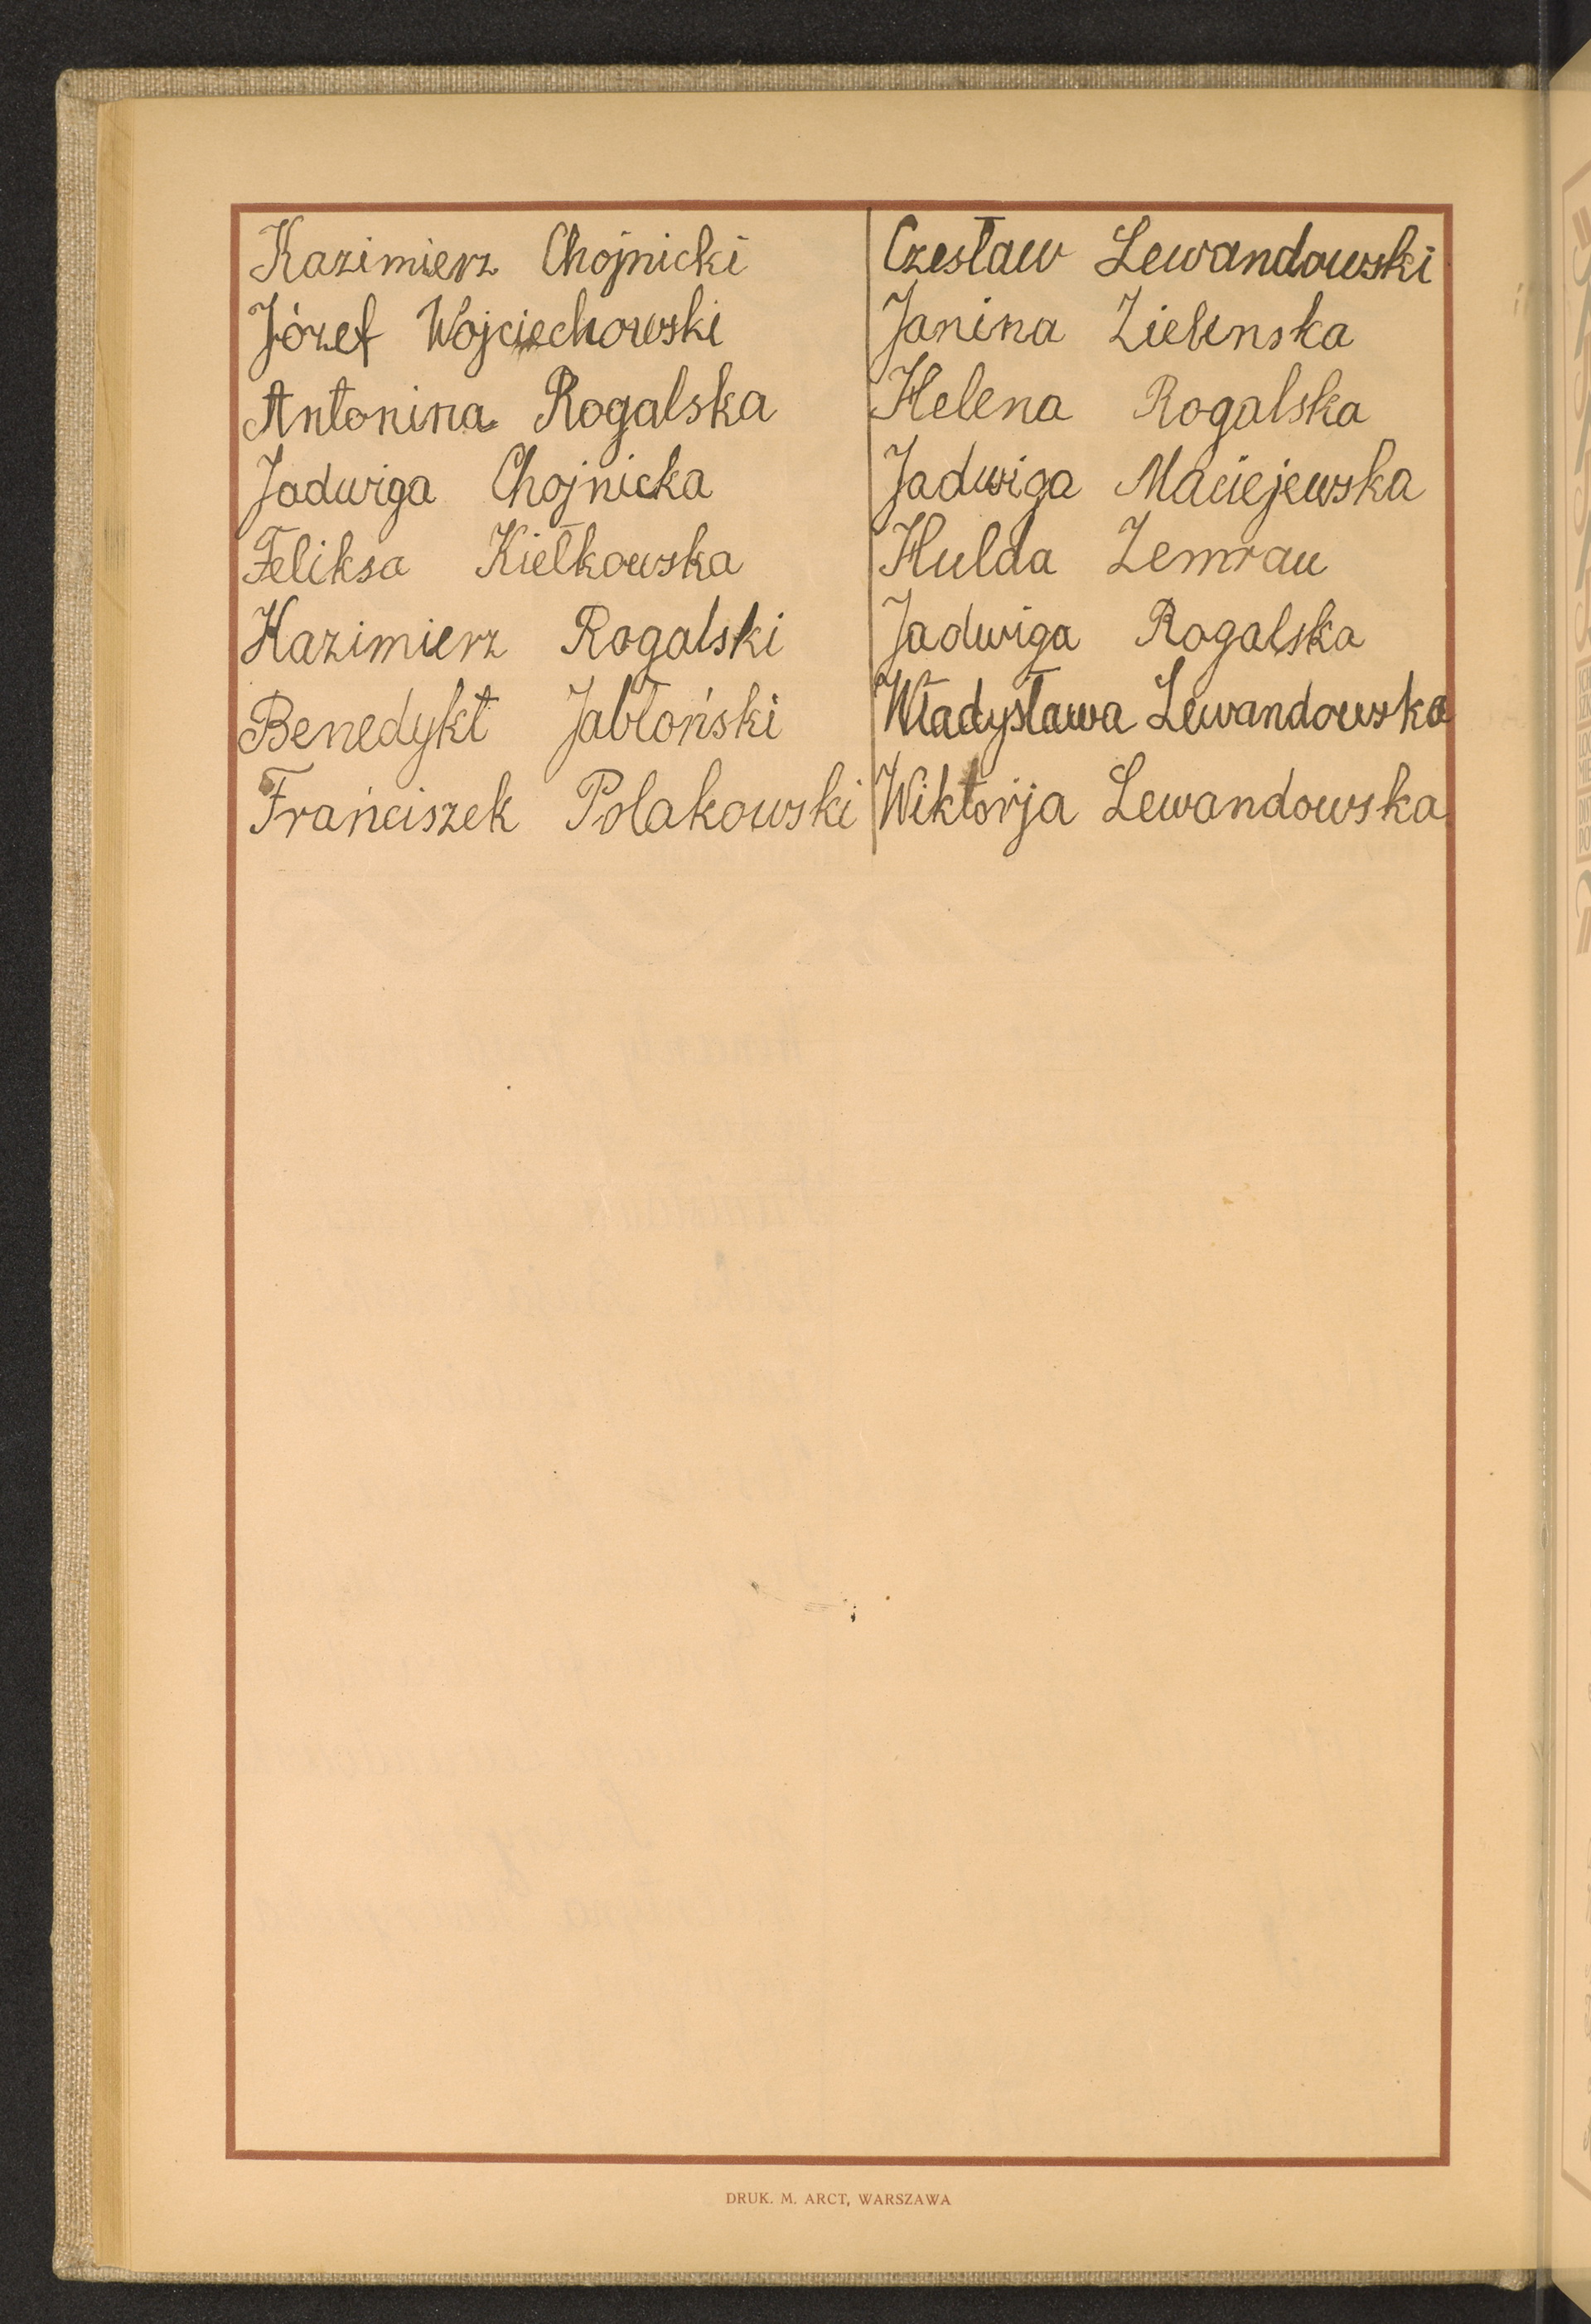 Kazimierz Chojnicki
Józef Wojciechowski
Antonina Rogalska
Jadwiga Chojnicka
Feliksa Kiełkowska
Kazimierz Rogalski
Benedykt Jabłoński
Franciszek Polakowski
Czesław Lewandowski
Janina Zielinska
Helena Rogalska
Jadwiga Maciejewska
Hulda Zemrau
Jadwiga Rogalska
Władysława Lewandowska
Wiktorja Lewandowska
DRUK. M. ARCT, WARSZAWA